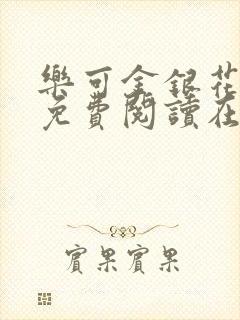 樂可金銀花
免費閱讀在
賓果賓果